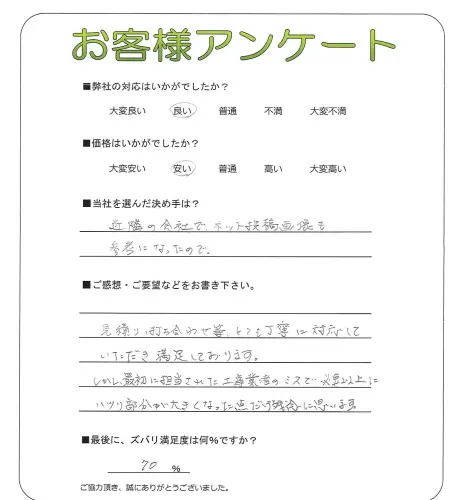 お客様アンケート
■弊社の対応はいかがでしたか？
大変良い 良い 普通 不満 大変不満
■価格はいかがでしたか？
大変安い 安い 普通 高い 大変高い
■当社を選んだ決め手は？
近隣の会社で、ネット投稿画像も
参考になったので。
■ご感想・ご要望などをお書き下さい。
見積り、打ち合わせ等、とても丁寧に対応して
いただき満足しております。
しかし、最初に担当された工事業者のミスで必要以上に
ハツリ部分が大きくなった点だけ残念に思います
■最後に、ズバリ満足度は何%ですか？
70 %
ご協力頂き、誠にありがとうございました。